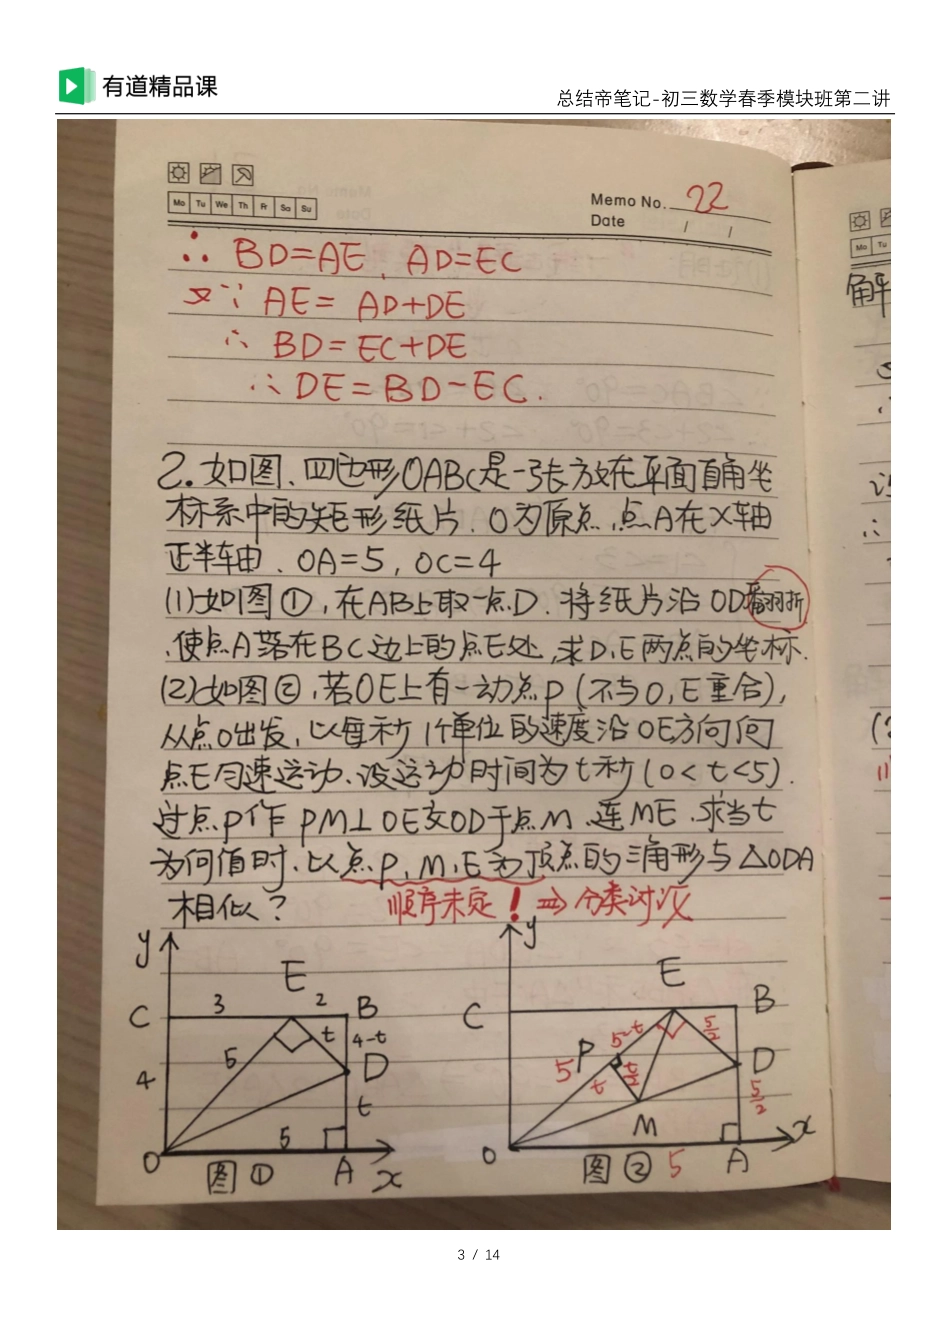 有道精品课
总结帝笔记-初三数学春季模块班第二讲
Memo No. 22
Mo Tu We Th Fr Sa Su
Date / /
∴ BD=AE, AD=EC
又∵ AE= AD+DE
∴ BD=EC+DE
∴ DE=BD-EC.
2.如图、四边形OABC是一张放在平面直角坐
标系中的矩形纸片.O为原点,点A在X轴
正半轴、OA=5, OC=4
(1)如图①,在AB上取一点D.将纸片沿OD翻折
使点A落在BC边上的点E处,求D、E两点的坐标.
(2)如图②,若OE上有一动点P(不与O,E重合),
从点O出发,以每秒1个单位的速度沿OE方向向
点E匀速运动、设运动时间为t秒(0<t<5).
过点P作PM⊥OE交OD于点M、连ME、求当t
为何值时、以点P、M、E为顶点的三角形与△ODA
相似?
顺序未定!⇒分类讨论
y
E
C 3 2 B
t 4-t
5 D
4 t
5
O A x
图①
y
E
C B
5-t 5/2
P D
5 t t/2 5/2
M
O A x
图② 5
Mo Tu
解
(2
3 / 14